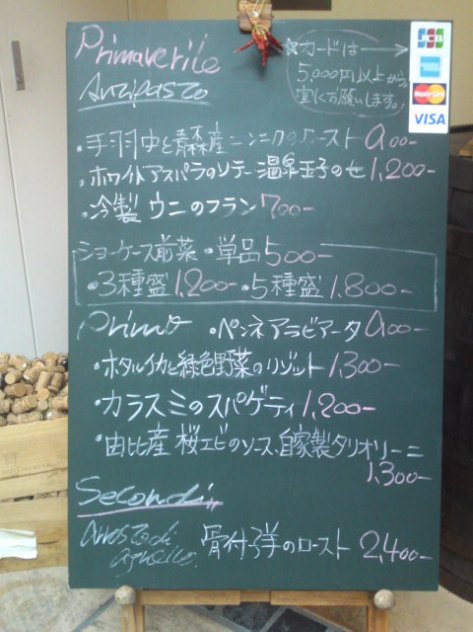 Primaverile
★カードは→
5,000円以上から。
宜しくお願いします。
JCB
AMERICAN EXPRESS
MasterCard
VISA
Antipasto
・手羽中と青森産ニンニクのロースト 900-
・ホワイトアスパラのソテー 温泉玉子のせ 1,200-
・冷製 ウニのフラン 700-
ショーケース前菜・単品 500-
・3種盛 1,200-・5種盛 1,800-
Primo ・ペンネアラビアータ 900-
・ホタルイカと緑色野菜のリゾット 1,300-
・カラスミのスパゲティ 1,200-
・由比産 桜エビのソース、自家製タリオリーニ
1,300-
Secondi
Arrosto di
agnello. 骨付子羊のロースト 2,400-